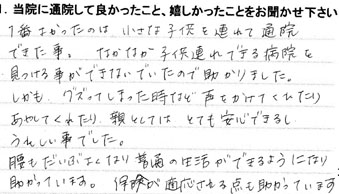 1. 当院に通院して良かったこと、嬉しかったことをお聞かせ下さい
1番よかったのは、小さな子供を連れて通院
できた事。 なかなか子供連れできる病院を
見つける事ができないでいたので助かりました。
しかも、グズってしまった時など声をかけてくれたり
あやしてくれたり、親としては とても安心できるし、
うれしい事でした。
腰もだいぶよくなり普通の生活ができるようになり
助かっています。 保険が適応される点も助かっています